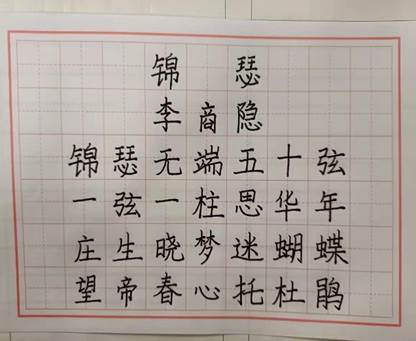 锦瑟
李商隐
锦瑟无端五十弦
一弦一柱思华年
庄生晓梦迷蝴蝶
望帝春心托杜鹃